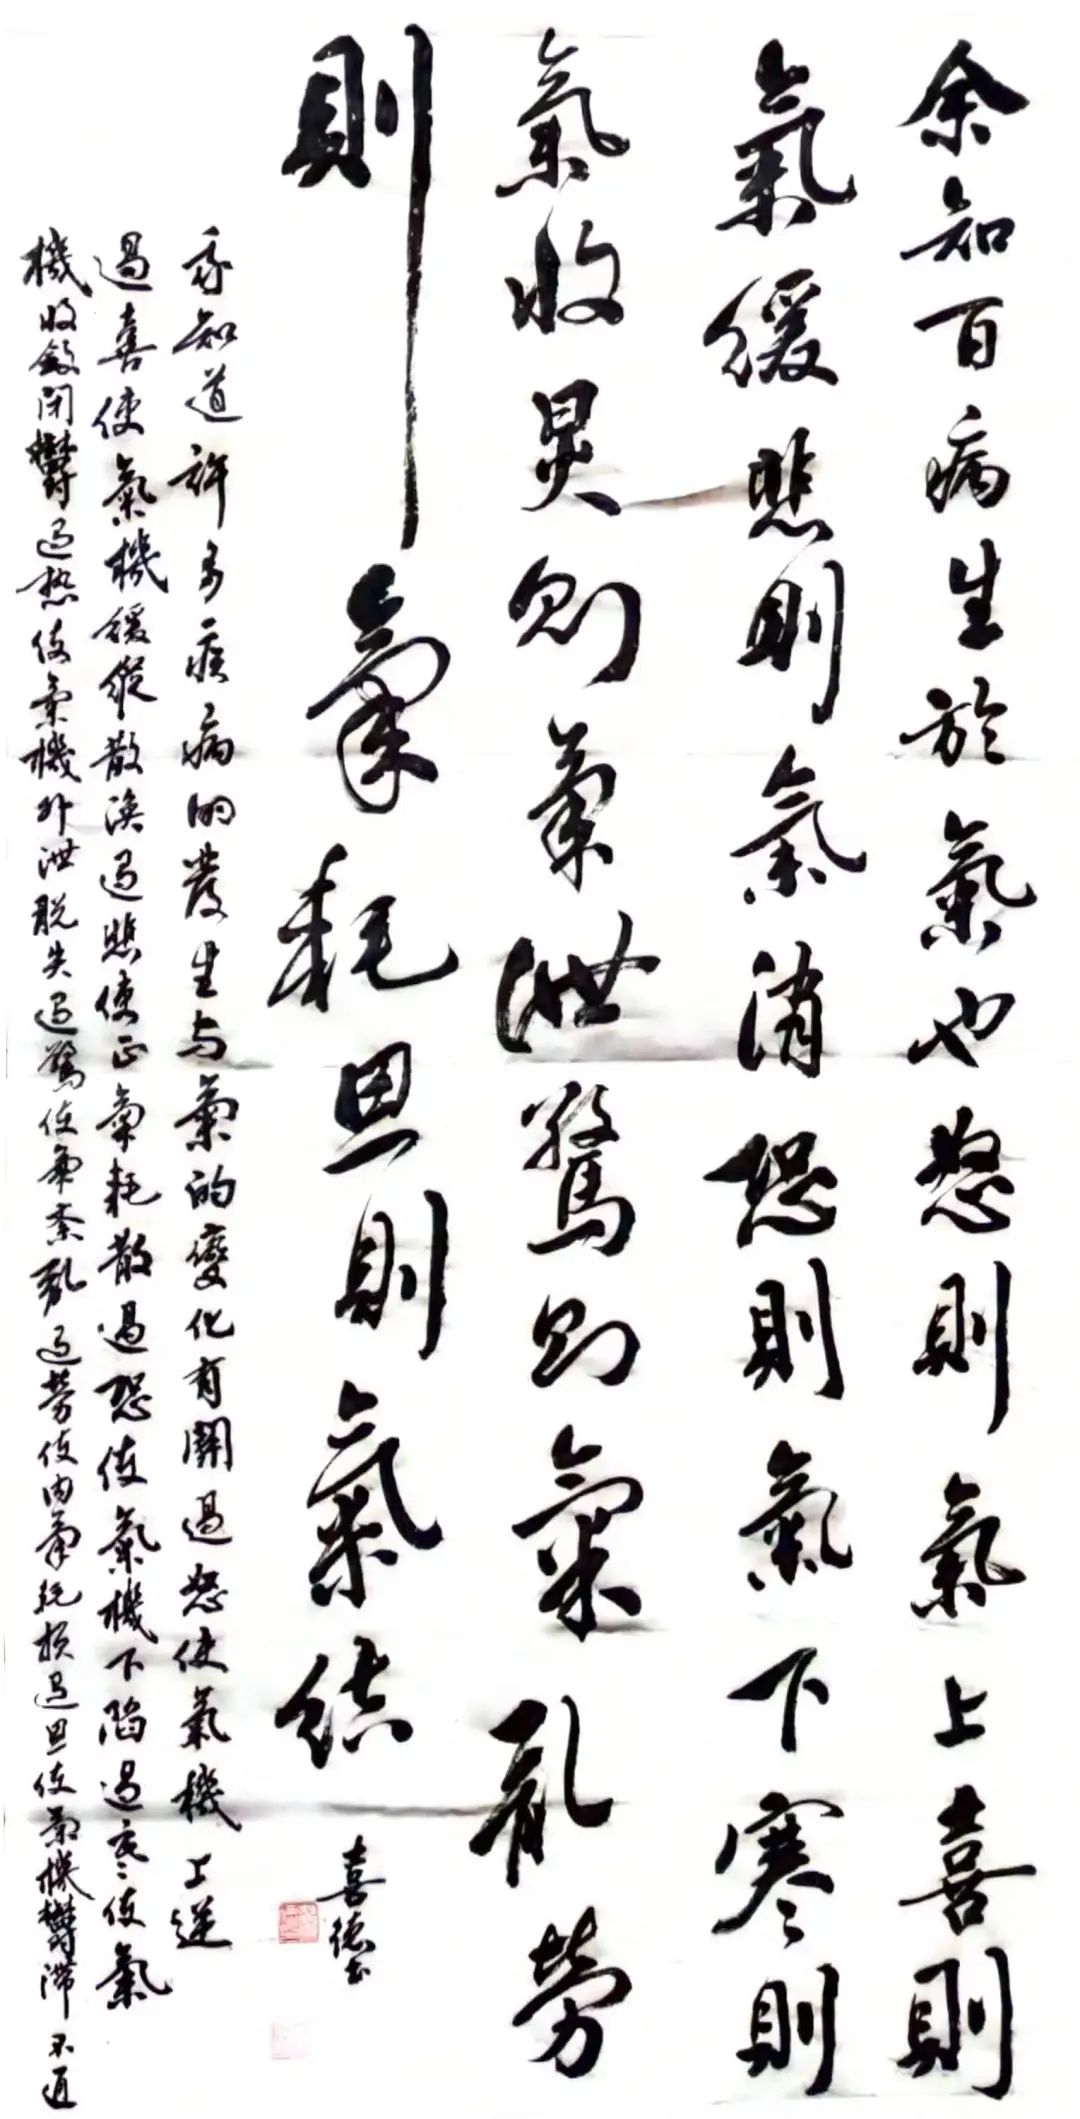 余知百病生於氣也怒則氣上喜則
氣緩悲則氣消恐則氣下寒則
氣收炅則氣泄驚則氣亂勞
則氣耗思則氣結
喜德書
我知道許多疾病的發生与氣的變化有關過怒使氣機上逆
過喜使氣機緩縱散渙過悲使正氣耗散過恐使氣機下陷過寒使氣
機收斂闭鬱過热使氣機外泄脱失過驚使氣紊亂過勞使内氣耗损過思使氣機鬱滞不通